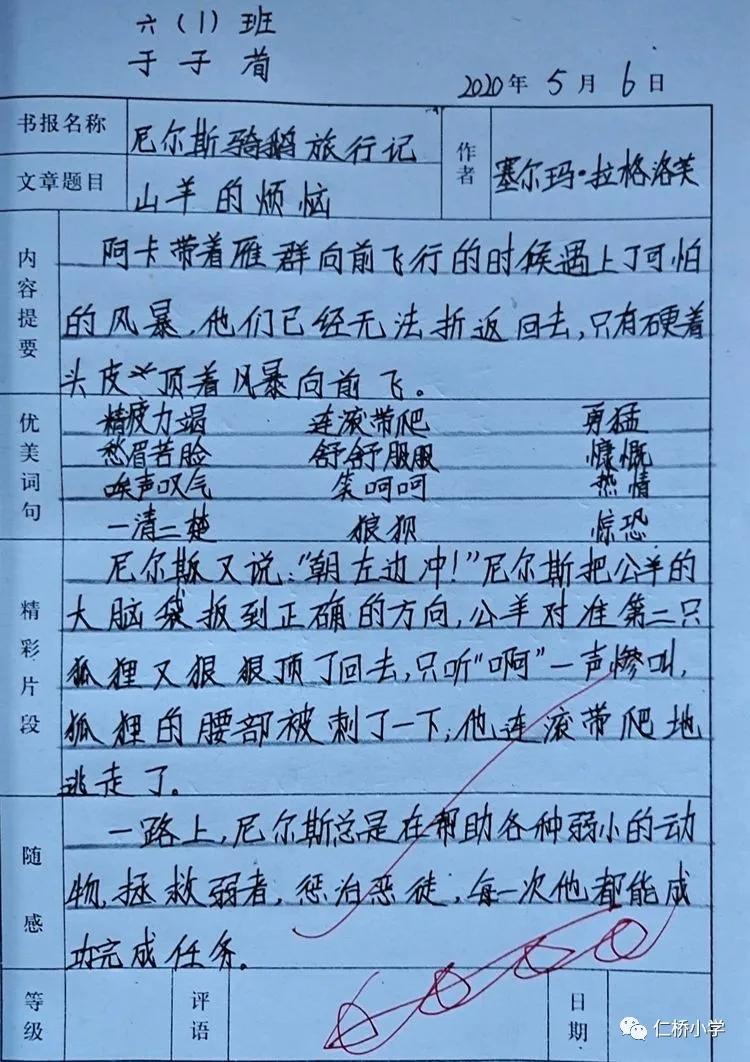 六（1）班
于子荀
2020年5月6日
书报名称 尼尔斯骑鹅旅行记
作者 塞尔玛·拉格洛芙
文章题目 山羊的烦恼
内容提要
阿卡带着雁群向前飞行的时候遇上了可怕
的风暴,他们已经无法折返回去,只有硬着
头皮顶着风暴向前飞。
优美词句
精疲力竭 连滚带爬 勇猛
愁眉苦脸 舒舒服服 慷慨
唉声叹气 笑呵呵 热情
一清二楚 狼狈 惊恐
精彩片段
尼尔斯又说:“朝左边冲!”尼尔斯把公羊的
大脑袋扳到正确的方向,公羊对准第二只
狐狸又狠狠顶了回去,只听“啊”一声惨叫,
狐狸的腰部被刺了一下;他连滚带爬地
逃走了。
随感
一路上,尼尔斯总是在帮助各种弱小的动
物,拯救弱者,惩治恶徒,每一次他都能成
功完成任务。
等级 评语 日期
仁桥小学